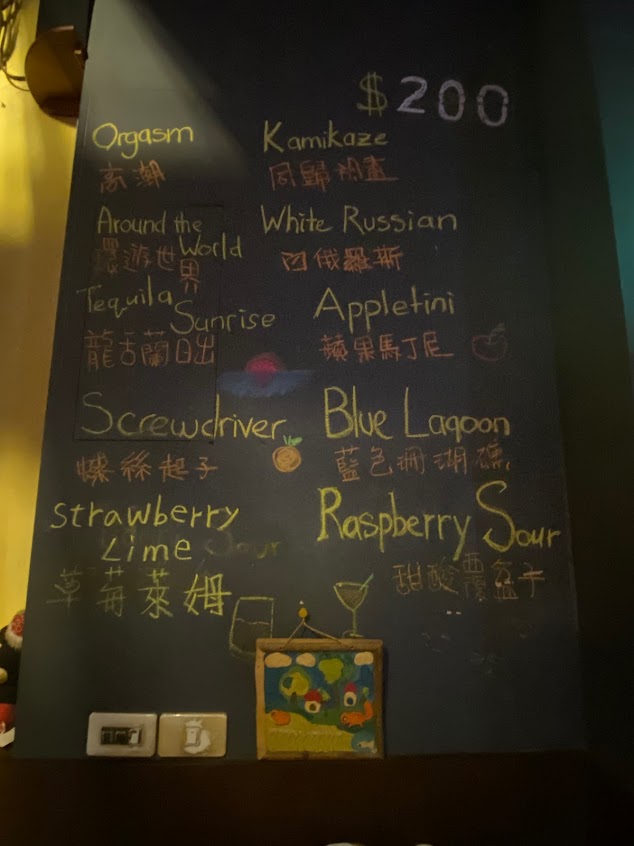 $200
Orgasm
高潮
Kamikaze
同歸於盡
Around the
World
環游世
界
White Russian
白俄羅斯
Tequila
Sunrise
龍舌蘭日出
Appletini
蘋果馬丁尼
Screwdriver
螺絲起子
Blue Lagoon
藍色珊瑚礁
Strawberry
Lime
草莓萊姆
Raspberry Sour
甜酸覆盆子